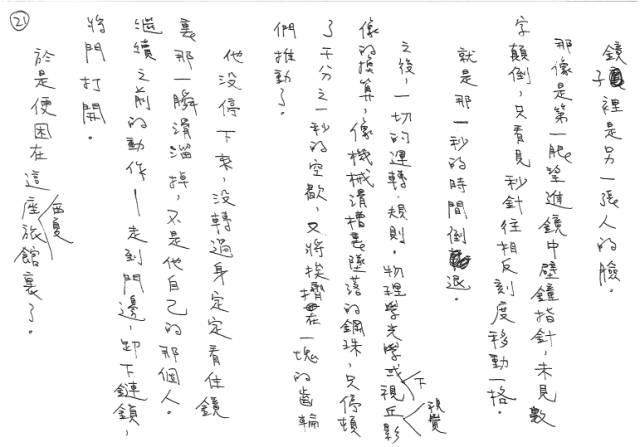 ㉑
鏡子裡是另一張人的臉。
那像是第一眼望進鏡中壁鐘指針,未見數
字顛倒,只看見秒針往相反刻度移動一格。
就是那一秒的時間倒退。
之後,一切的運轉.規則。物理學光學或視丘下視覺影
像的換算,像機械滑槽裏墜落的鋼珠,只停頓
了千分之一秒的空歇,又將挨擠在一塊的齒輪
們推動了。
他沒停下來,沒轉過身定定看住鏡
裏那一瞬滑溜掉,不是他自己的那個人。
繼續之前的動作—走到門邊,卸下鏈鎖,
將門打開。
於是便困在這座西夏旅館裏了。